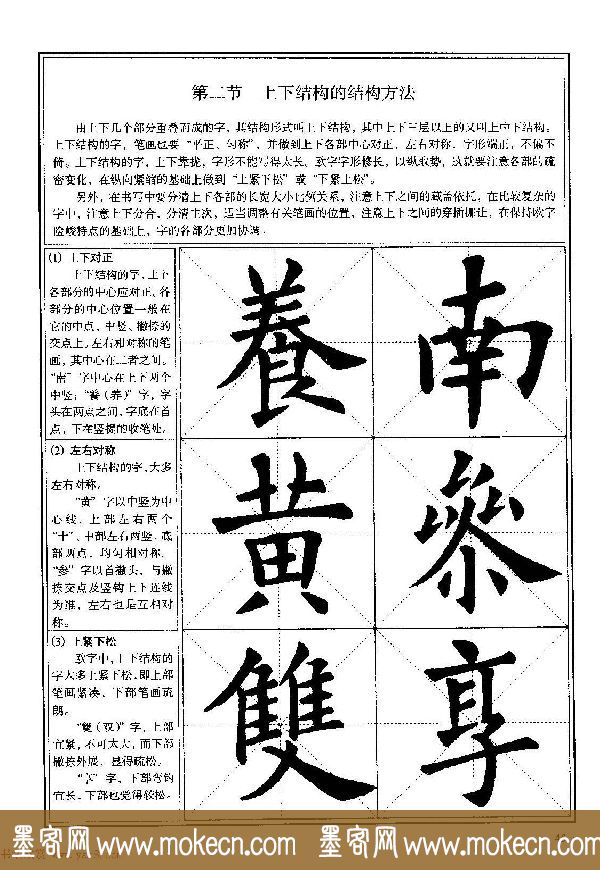 第二节 上下结构的结构方法
由上下几个部分重叠而成的字，其结构形式叫上下结构，其中上下三层以上的又叫上中下结构。
上下结构的字，笔画也要“平正、匀称”，并做到上下各部中心对正，左右对称，字形端正，不偏不
倚。上下结构的字，上下靠拢，字形不能写得太长，欧字字形修长，以纵取势，这就要注意各部的疏
密变化，在纵向紧缩的基础上做到“上紧下松”或“下紧上松”。
另外，在书写中要分清上下各部的长宽大小比例关系，注意上下之间的覆盖依托，在比较复杂的
字中，注意上下分合，分清主次，适当调整有关笔画的位置，注意上下之间的穿插挪让，在保持欧字
险峻特点的基础上，字的各部分更加协调。
(1) 上下对正
上下结构的字，上下
各部分的中心应对正，各
部分的中心位置一般在
它的中点、中竖、撇捺的
交点上，左右相对称的笔
画，其中心在二者之间。
“南”字中心在上下两个
中竖；“養(养)”字，字
头在两点之间，字底在首
点、下在竖提的收笔处。
養 南
(2) 左右对称
上下结构的字，大多
左右对称。
“黄”字以中竖为中
心线，上部左右两个
“十”、中部左右两竖、底
部两点，均匀相对称。
“参”字以首撇头、与撇
捺交点及竖钩上下连线
为准，左右也是互相对
称。
黄 參
(3) 上紧下松
欧字中，上下结构的
字大多上紧下松，即上部
笔画紧凑，下部笔画疏
朗。
“雙(双)”字，上部
宜紧，不可太大，而下部
撇捺外展，显得疏松。
字，下部弯钩
宜长，下部也觉得较松。
雙 享
墨客网 www.mokecn.com 墨客网 www.mokecn.com